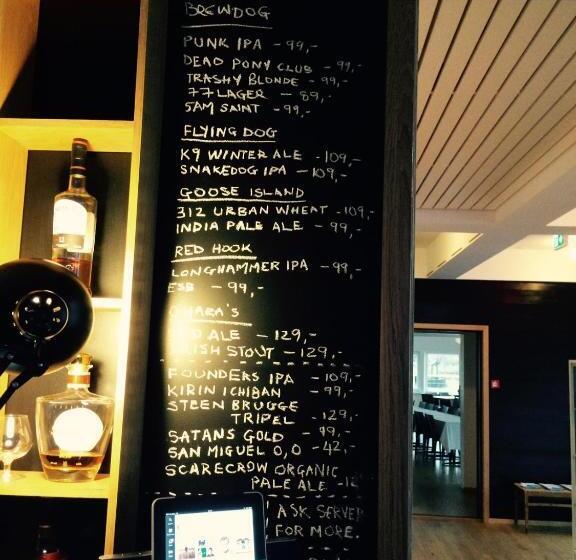 BREWDOG
PUNK IPA - 99,-
DEAD PONY CLUB - 99,-
TRASHY BLONDE - 99,-
77 LAGER - 89,-
5AM SAINT - 99,-
FLYING DOG
K9 WINTER ALE - 109,-
SNAKEDOG IPA - 109,-
GOOSE ISLAND
312 URBAN WHEAT - 109,-
INDIA PALE ALE - 99,-
RED HOOK
LONGHAMMER IPA - 99,-
ESB - 99,-
O'HARA'S
ALE - 129,-
IRISH STOUT - 129,-
FOUNDERS IPA - 109,-
KIRIN ICHIBAN - 99,-
STEEN BRUGGE
TRIPEL - 129,-
SATANS GOLD - 99,-
SAN MIGUEL 0,0 - 42,-
SCARECROW ORGANIC
PALE ALE
ASK SERVER
FOR MORE.